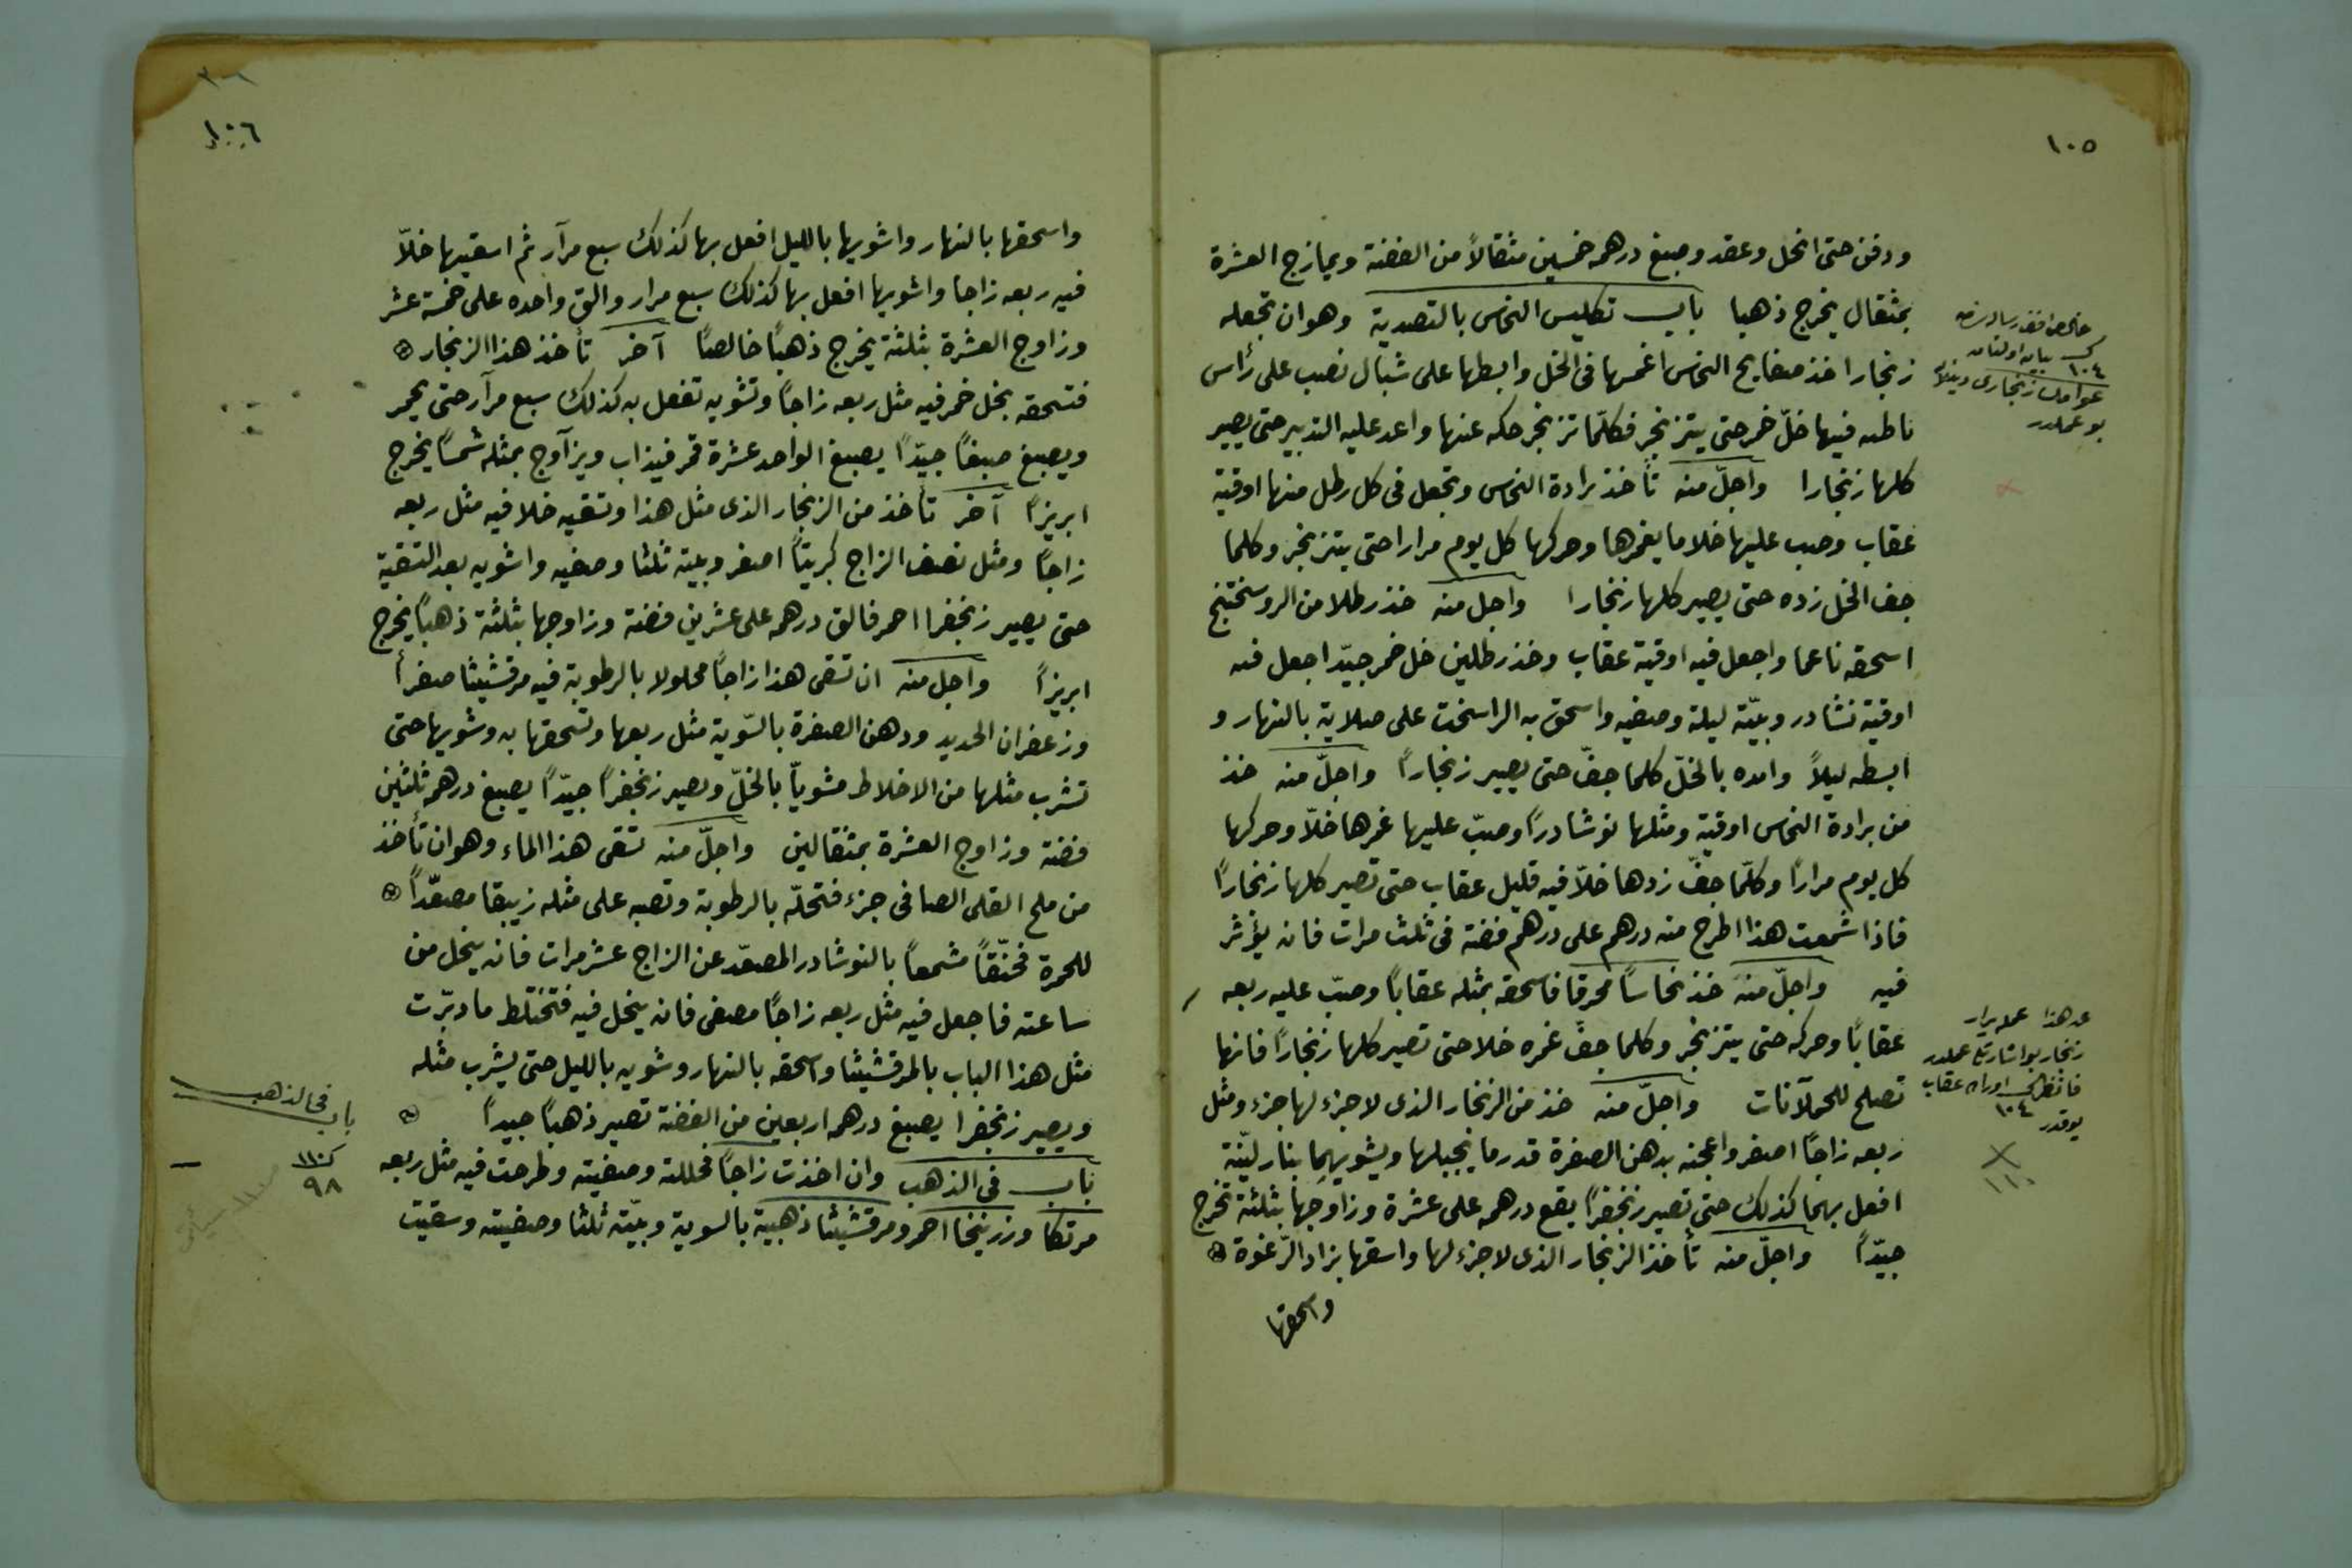 ١٠٥
ودفن حتى انحل وعقد وصبغ درهمه خمسين مثقالاً من الفضة ويمازج العشرة
بمثقال يخرج ذهبا باب تكليس النحاس بالتصدية وهو ان تجعله
زنجارا خذ صفايح النحاس اغمسها فى الخل وابسطها على شبال نصب على رأس
ناطه فيها خلّ خمر حتى يتزنجر فكلّما تزنجر حكه عنها واعد عليه التدبير حتى يصير
كلها زنجارا واجلّ منه تأخذ برادة النحاس وتجعل فى كل رطل منها اوقية
عقاب وصب عليها خلا ما يغمرها وحركها كل يوم مرارا حتى يتزنجر وكلما
جف الخل زده حتى يصير كلها زنجارا واجل منه خذ رطلا من الروسختج
اسحقه ناعما واجعل فيه اوقية عقاب وخذ رطلين خل خمر جيّد اجعل فيه
اوقية نشادر وبيّته ليلة وصفيه واسحق به الراسخت على صلاية بالنهار و
ابسطه ليلاً وامده بالخلّ كلما جفّ حتى يصير زنجاراً واجلّ منه خذ
من برادة النحاس اوقية ومثلها نوشادراً وصبّ عليها غمرها خلاّ وحركها
كل يوم مراراً وكلّما جفّ زدها خلاّ فيه قليل عقاب حتى تصير كلها زنجاراً
فاذا شمعت هذا اطرح منه درهم على درهم فضة فى ثلث مرات فانه يؤثر
فيه واجلّ منه خذ نحاساً محرقا فاسحقه بمثله عقاباً وصبّ عليه ربعه
عقاباً وحركه حتى يتزنجر وكلما جفّ غمره خلا حتى تصير كلها زنجاراً فانها
تصلح للحملانات واجلّ منه خذ من الزنجار الذى لا جزء لها جزء ومثل
ربعه زاجاً اصفر واعجنه بدهن الصفرة قدر ما يجبلها ويشويهما بنار ليّنة
افعل بهما كذلك حتى تصير زنجفراً يقع درهمه على عشرة وزاوجها بثلثة تخرج
جيّداً واجلّ منه تأخذ الزنجار الذى لا جزء لها واسقها بزاد الرّغوة
واسحقها
١٠٤
زنجارى
بو عملدر
عقاب
١٠٤
١١٠
١٠٦
واسحقها بالنهار واشويها بالليل افعل بها كذلك سبع مرآر ثم اسقيها خلاّ
فيه ربعه زاجا واشويها افعل بها كذلك سبع مرار والق واحده على خمسة عشر
وزاوج العشرة بثلثة يخرج ذهباً خالصاً آخر تأخذ هذا الزنجار
فتسحقه بخل خمر فيه مثل ربعه زاجاً وتشويه تفعل به كذلك سبع مرآر حتى يحمر
ويصبغ صبغاً جيّداً يصبغ الواحد عشرة قمر فيذاب ويزآوج بمثله شمساً يخرج
ابريزاً آخر تأخذ من الزنجار الذى مثل هذا وتسقيه خلا فيه مثل ربعه
زاجاً ومثل نصف الزاج كبريتاً اصفر وبيته ثلثا وصفيه واشويه بعد التسقية
حتى يصير زنجفرا احمر فالق درهمه على عشرين فضة وزاوجها بثلثة ذهباً يخرج
ابريزاً واجل منه ان تسقى هذا زاجاً محلولا بالرطوبة فيه مرقشيثا صفرأ
وزعفران الحديد ودهن الصفرة بالسّوية مثل ربعها وتسحقها به وشويها حتى
تشرب مثلها من الاخلاط مشويّاً بالخلّ ويصير زنجفراً جيّداً يصبغ درهمه ثلثين
فضة وزاوج العشرة بمثقالين واجلّ منه تسقى هذا الماء وهو ان تأخذ
من ملح القلى الصافى جزء فتحلّه بالرطوبة وتصبه على مثله زيبقا مصعّداً
للحمرة مخنّقاً مشمعاً بالنوشادر المصعّد عن الزاج عشر مرات فانه ينحل من
ساعته فاجعل فيه مثل ربعه زاجاً مصفى فانه ينحل فيه فتختلط ما دبّرت
مثل هذا الباب بالمرقشيثا واسحقه بالنهار وشويه بالليل حتى يشرب مثله
ويصير زنجفرا يصبغ درهمه اربعين من الفضة تصير ذهباً جيداً
باب فى الذهب وان اخذت زاجاً فحللته وصفيته وطرحت فيه مثل ربعه
مرتكا وزرنيخا احمر ومرقشيثا ذهبية بالسوية وبيّته ثلثا وصفيته وسقيت
باب فى الذهب
٩٨